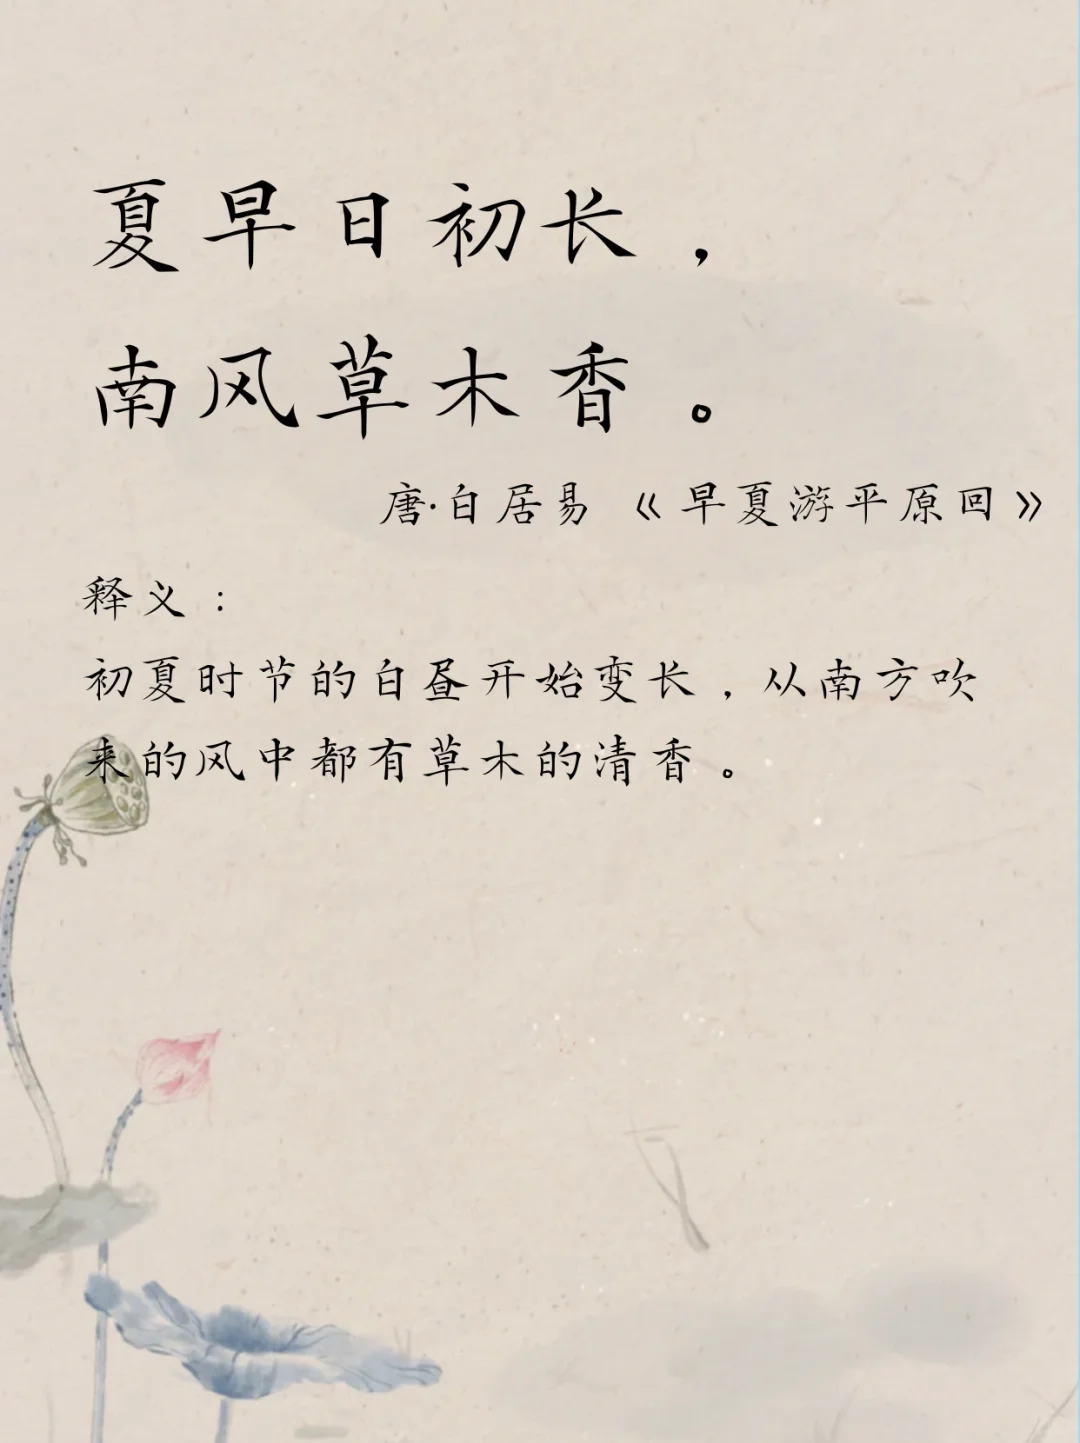 夏早日初长，
南风草木香。
唐·白居易 《早夏游平原回》
释义：
初夏时节的白昼开始变长，从南方吹
来的风中都有草木的清香。